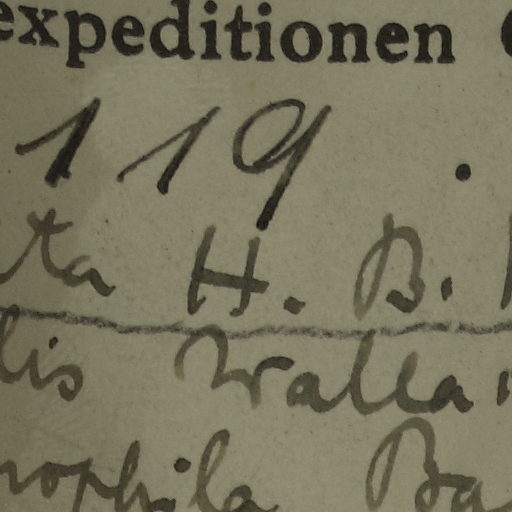 expeditionen
119.
ta H. B.
lis Walla
nophila Ba